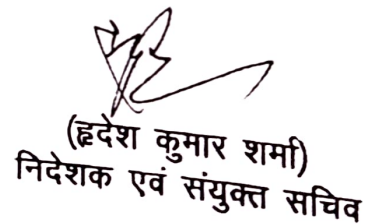 (हृदेश कुमार शर्मा)
निदेशक एवं संयुक्त सचिव